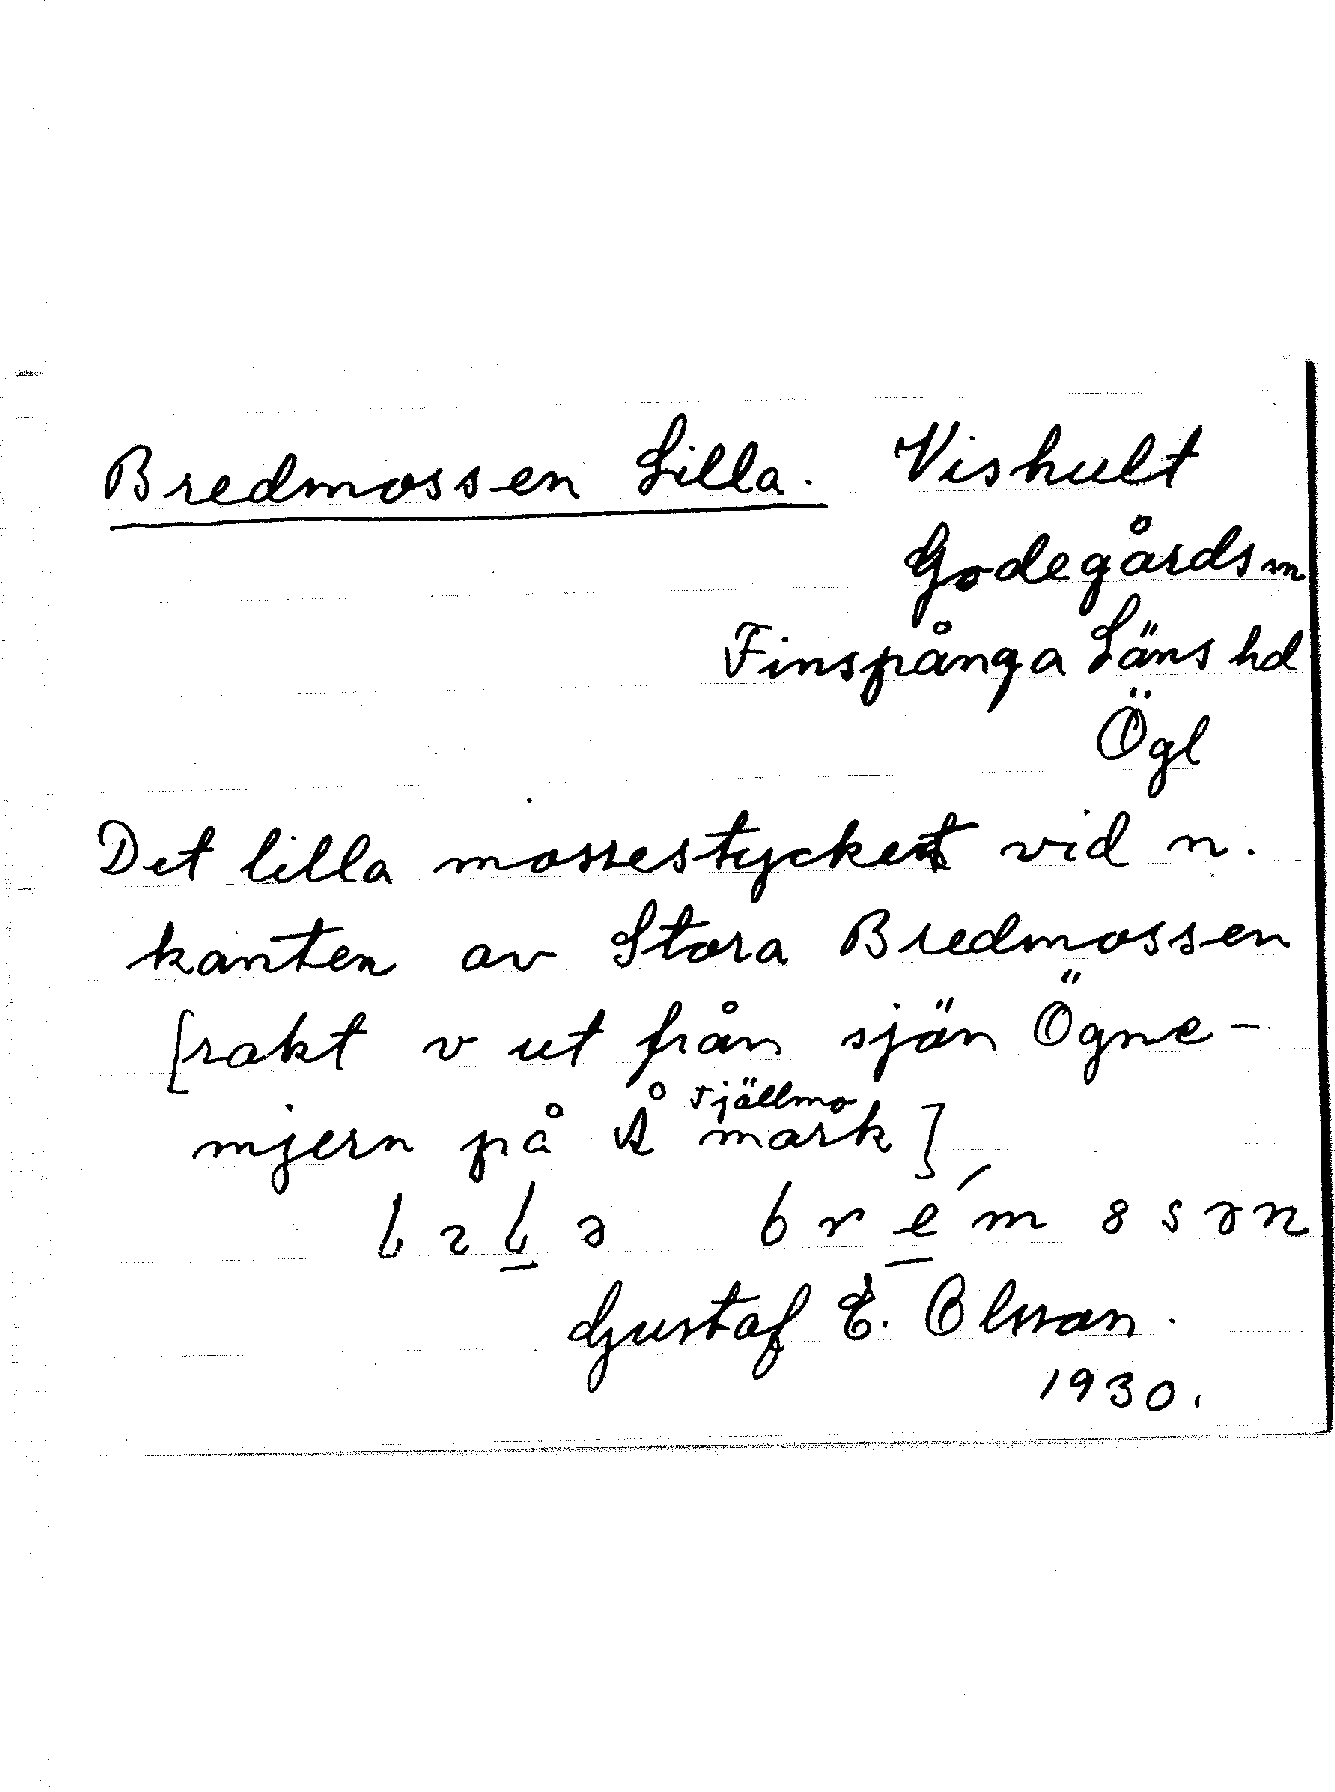 Bredmossen Lilla. Vishult
Godegårds m
Finspånga Läns hd
Ögl
Det lilla mossestycket vid n.
kanten av Stora Bredmossen
[rakt v ut från sjön Ögne-
mjern på Å Tjällmo mark]
Gustaf E. Olsson.
1930.